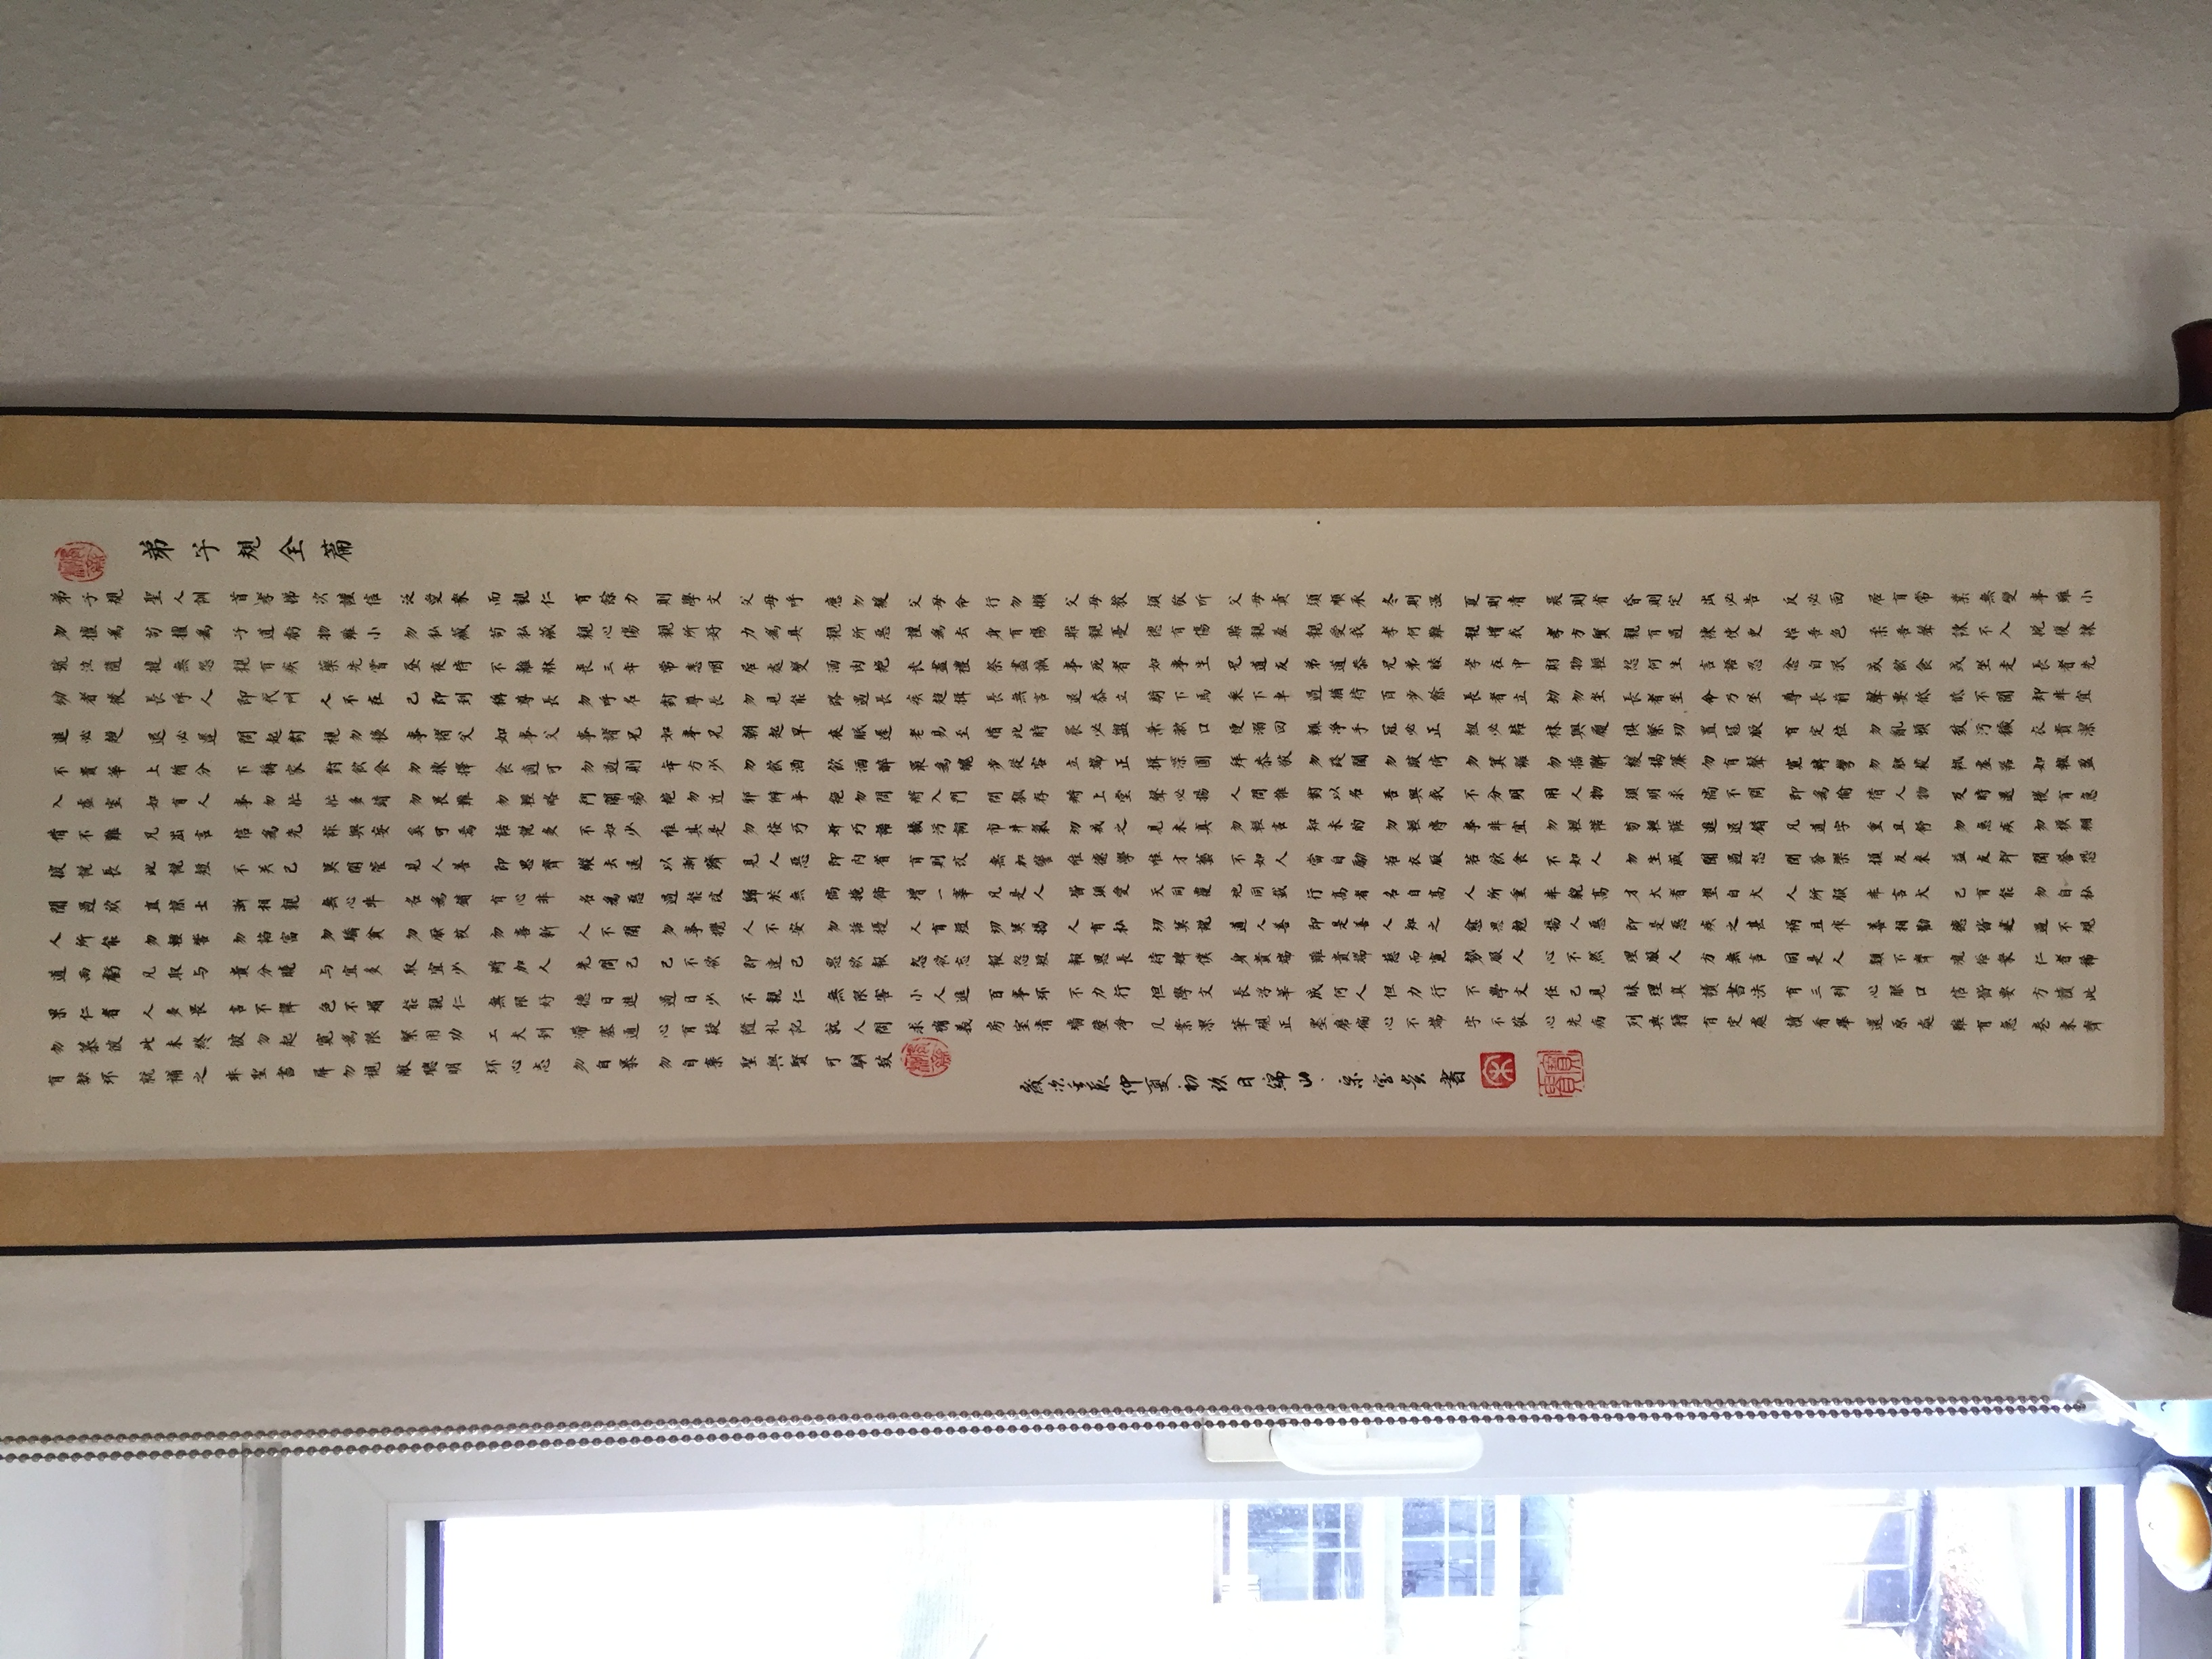 弟子規全篇
弟子規 聖人訓 首孝悌 次謹信 泛愛眾 而親仁 有餘力 則學文 父母呼 應勿緩 父母命 行勿懶 父母教 須敬听 父母責 須順承 冬則溫 夏則凊 晨則省 昏則定 出必告 反必面 居有常 業無變 事雖小
勿擅為 苟擅為 子道虧 物雖小 勿私藏 苟私藏 親心傷 親所好 力為具 親所惡 謹為去 身有傷 貽親憂 德有傷 貽親羞 親愛我 孝何難 親憎我 孝方賢 親有過 諫使更 怡吾色 柔吾聲 諫不入 悅復諫
號泣隨 撻無怨 親有疾 藥先嘗 晝夜侍 不離床 喪三年 常悲咽 居處變 酒肉絕 喪盡禮 祭盡誠 事死者 如事生 兄道友 弟道恭 兄弟睦 孝在中 財物輕 怨何生 言語忍 忿自泯 或飲食 或坐走 長者先
幼者後 長呼人 即代叫 人不在 己即到 稱尊長 勿呼名 對尊長 勿見能 路遇長 疾趨揖 長無言 退恭立 騎下馬 乘下車 過猶待 百步餘 長者立 幼勿坐 長者坐 命乃坐 尊長前 聲要低 低不聞 卻非宜
進必趨 退必遲 問起對 視勿移 事諸父 如事父 事諸兄 如事兄 朝起早 夜眠遲 老易至 惜此時 晨必盥 兼漱口 便溺回 輒淨手 冠必正 紐必結 襪與履 俱緊切 置冠服 有定位 勿亂頓 致污穢 衣貴潔
不貴華 上循分 下稱家 對飲食 勿揀擇 食適可 勿過則 年方少 勿飲酒 飲酒醉 最為醜 步從容 立端正 揖深圓 拜恭敬 勿踐閾 勿跛倚 勿箕踞 勿搖髀 緩揭簾 勿有聲 寬轉彎 勿觸棱 執虛器 如執盈
入虛室 如有人 事勿忙 忙多錯 勿畏難 勿輕略 鬥鬧場 絕勿近 邪僻事 絕勿問 將入門 問孰存 將上堂 聲必揚 人問誰 對以名 吾與我 不分明 用人物 須明求 倘不問 即為偷 借人物 及時還 後有急
借不難 凡出言 信為先 詐與妄 奚可焉 話說多 不如少 惟其是 勿佞巧 奸巧語 穢污詞 市井氣 切戒之 見未真 勿輕言 知未的 勿輕傳 事非宜 勿輕諾 苟輕諾 進退錯 凡道字 重且舒 勿急疾 勿模糊
彼說長 此說短 不关己 莫閒管 見人善 即思齊 縱去遠 以漸躋 見人惡 即內省 有則改 無加警 唯德學 唯才藝 不如人 當自勵 若衣服 若飲食 不如人 勿生戚 聞過怒 聞譽樂 損友來 益友卻 聞譽恐
聞過欣 直諒士 漸相親 無心非 名為錯 有心非 名為惡 過能改 歸於無 倘掩飾 增一辜 凡是人 皆須愛 天同覆 地同載 行高者 名自高 人所重 非貌高 才大者 望自大 人所服 非言大 己有能 勿自私
人所能 勿輕訾 勿諂富 勿驕貧 勿厭故 勿喜新 人不閒 勿事攪 人不安 勿話擾 人有短 切莫揭 人有私 切莫說 道人善 即是善 人知之 愈思勉 揚人惡 即是惡 疾之甚 禍且作 善相勸 德皆建 過不規
道兩虧 凡取与 貴分曉 与宜多 取宜少 將加人 先問己 己不欲 即速已 恩欲報 怨欲忘 報怨短 報恩長 待婢僕 身貴端 雖貴端 慈而寬 勢服人 心不然 理服人 方無言 同是人 類不齊 流俗眾 仁者稀
果仁者 人多畏 言不諱 色不媚 能親仁 無限好 德日進 過日少 不親仁 無限害 小人進 百事坏 不力行 但學文 長浮華 成何人 但力行 不學文 任己見 昧理真 讀書法 有三到 心眼口 信皆要 方讀此
勿慕彼 此未終 彼勿起 寬為限 緊用功 工夫到 滯塞通 心有疑 隨札記 就人問 求確義 房室清 牆壁淨 几案潔 筆硯正 墨磨偏 心不端 字不敬 心先病 列典籍 有定處 讀看畢 還原處 雖有急 卷束齊
有缺坏 就補之 非聖書 屏勿視 敝聰明 坏心志 勿自暴 勿自棄 聖與賢 可馴致
歲次壬辰仲夏初玖日綿山梁宝貴書